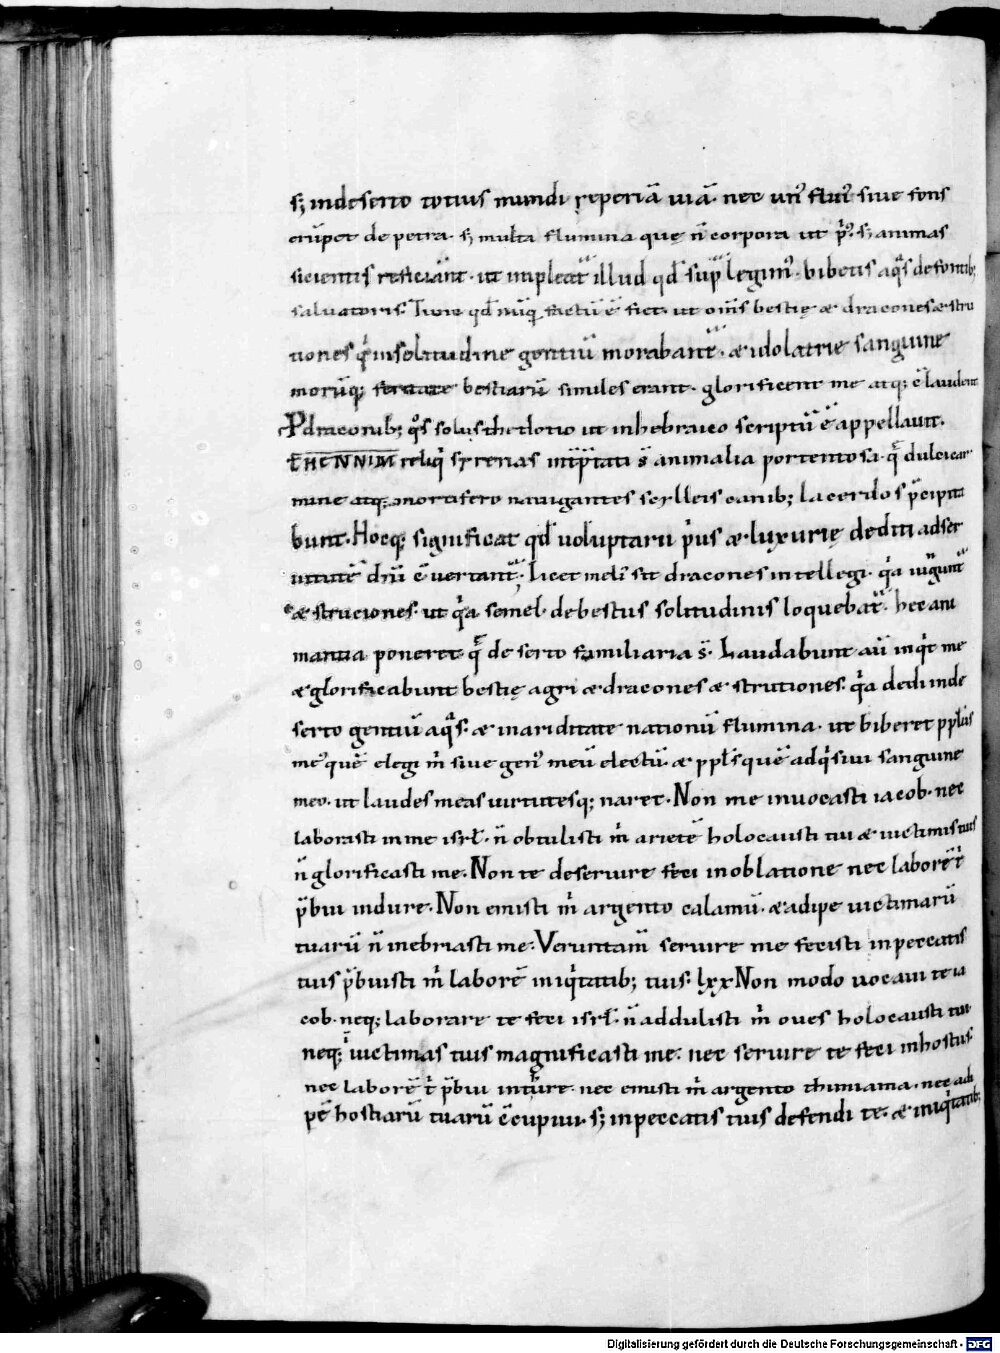 s; indeserto totius mundi reperiā uiā. nec un᷒ flui᷒ siue fons
erūpet de petra. s; multa flumina quę n̄ corpora ut p̓᷒. s; animas
sicientis reficiant. ut impleat᷒ illud qđ sup̄ legim᷒. bibetis aq̄s defontib;
saluatoris. Tunc qđ nūq̄ factū ē fiet. ut om̄s bestię æ dracones æ stru
tiones q̓ insolitudine gentiū morabant᷒. æ idolatrie sanguine
morūq; feritate bestiarū similes erant. glorificent me atq; c̄laudent
P draconib; q̄s solus theodotio ut inhebraico scriptū ē appellauit.
THENNIM reliq̓ syrenas int̄p̄tati s̄ animalia portentosa. q̄ dulci car
mine atq; mortifero nauigantes scylleis canib; lacerdos p̄cipita
bunt. Hocq; significat qđ uoluptarii p̓us æ luxurię dediti adser
uitutē dn̄i c̄uertant᷒. Licet meli᷒ sit dracones intellegi. q̓a iungunt᷒
æ struciones. ut q̓a semel debestiis solitudinis loquebat᷒. hec ani
mantia poneret q̄ deserto familiaria s̄. Laudabunt aū inq̓t me
æ glorificabunt bestię agri æ dracones æ strutiones. q̓a dedi inde
serto gentiū aq̄s. æ inariditate nationū flumina. ut biberet ppl̄s
me᷒ quē elegi m̓ siue gen᷒ meū electū. æ ppl̄s quē adq̓siui sanguine
meo. ut laudes meas uirtutesq; naret. Non me inuocasti iacob. nec
laborasti inme isrl̄. n̄ obtulisti m̓ arietē holocausti tui æ uictimis tuis
n̄ glorificasti me. Non te deseruire feci inoblatione nec laborē t̓
p̄bui indure. Non emisti m̓ argento calamū. æ adipe uictimarū
tuarū n̄ inebriasti me. Veruntam̄ seruire me fecisti inpeccatis
tuis p̄buisti m̓ laborē iniq̓tatib; tuis. lxx Non modo uocaui te ia
cob. neq; laborare te feci isrl̄. n̄ addulisti m̓ oues holocausti tui.
neq; ī uictimas tuis magnificasti me. nec seruire te feci inhostiis.
nec laborē t̓ p̄bui inture. nec emisti m̓ argento thimiama. nec adi
pē hostiarū tuarū c̄cupiui. s; inpeccatis tuis defendi te. æ iniq̓tatib;
Digitalisierung gefördert durch die Deutsche Forschungsgemeinschaft - DFG